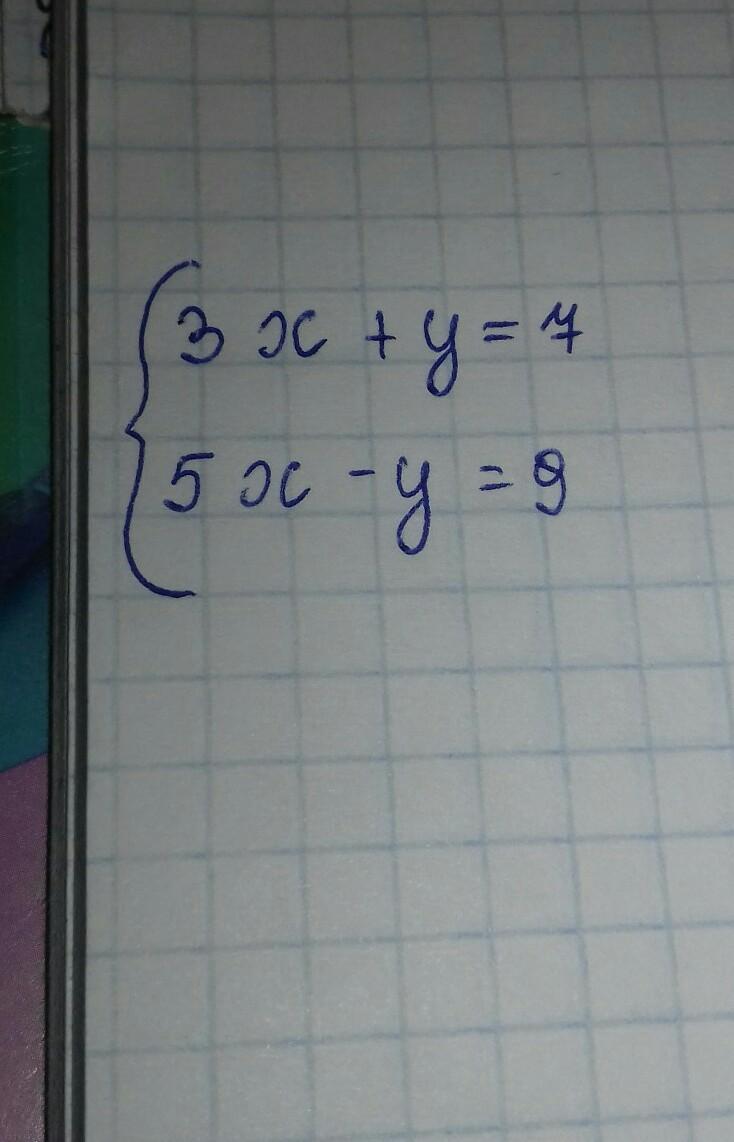 3x + y = 7
5x - y = 9